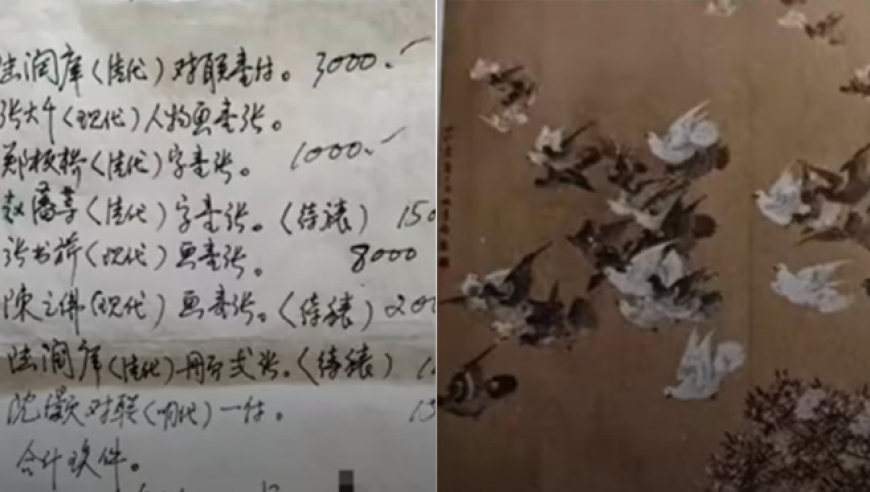 陆润庠（清代）对联壹付。3000.✓
张大千（现代）人物画壹张。
郑板桥（清代）字壹张。1000.✓
（清代）字壹张。（待裱）150
张书旂（现代）画壹张。8000
陳之佛（现代）画壹张。（待裱）200
陆润庠（清代）册页弍张。（待裱）
沈灏对联（明代）一付。13
合计玖件。